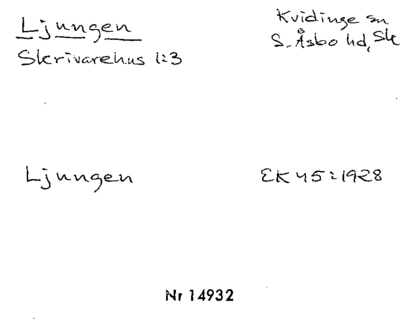 Ljungen
Kvidinge sn
Skrivarehus 1:3
S. Åsbo hd, Sk
Ljungen
EK 45:1928
Nr 14932